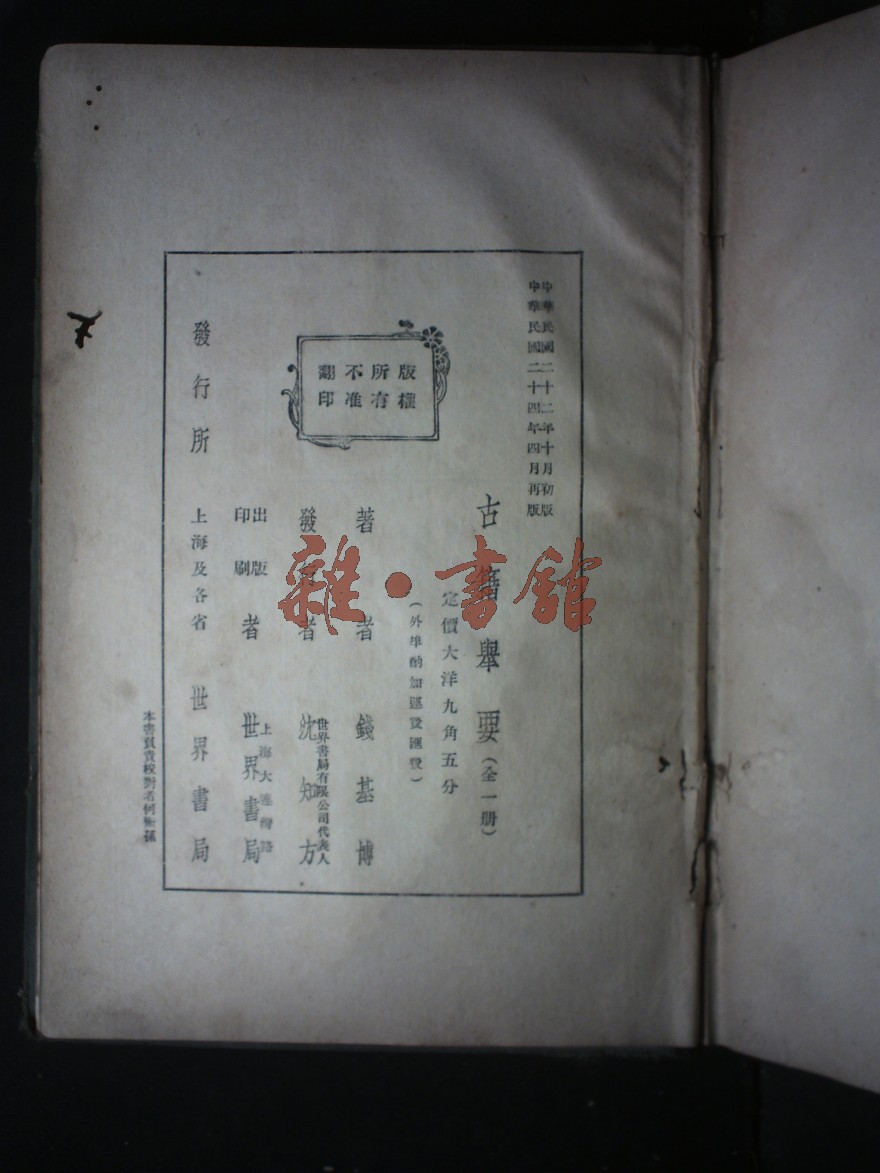 中華民國二十二年十月初版
中華民國二十四年四月再版
古籍舉要（全一册）
定價大洋九角五分
（外埠酌加運費匯費）
版權
所有
不准
翻印
著者　錢基博
發行者　世界書局有限公司代表人　沈知方
出版
印刷
者　上海大連灣路　世界書局
發行所　上海及各省　世界書局
本書負責校對者何
雜·書館